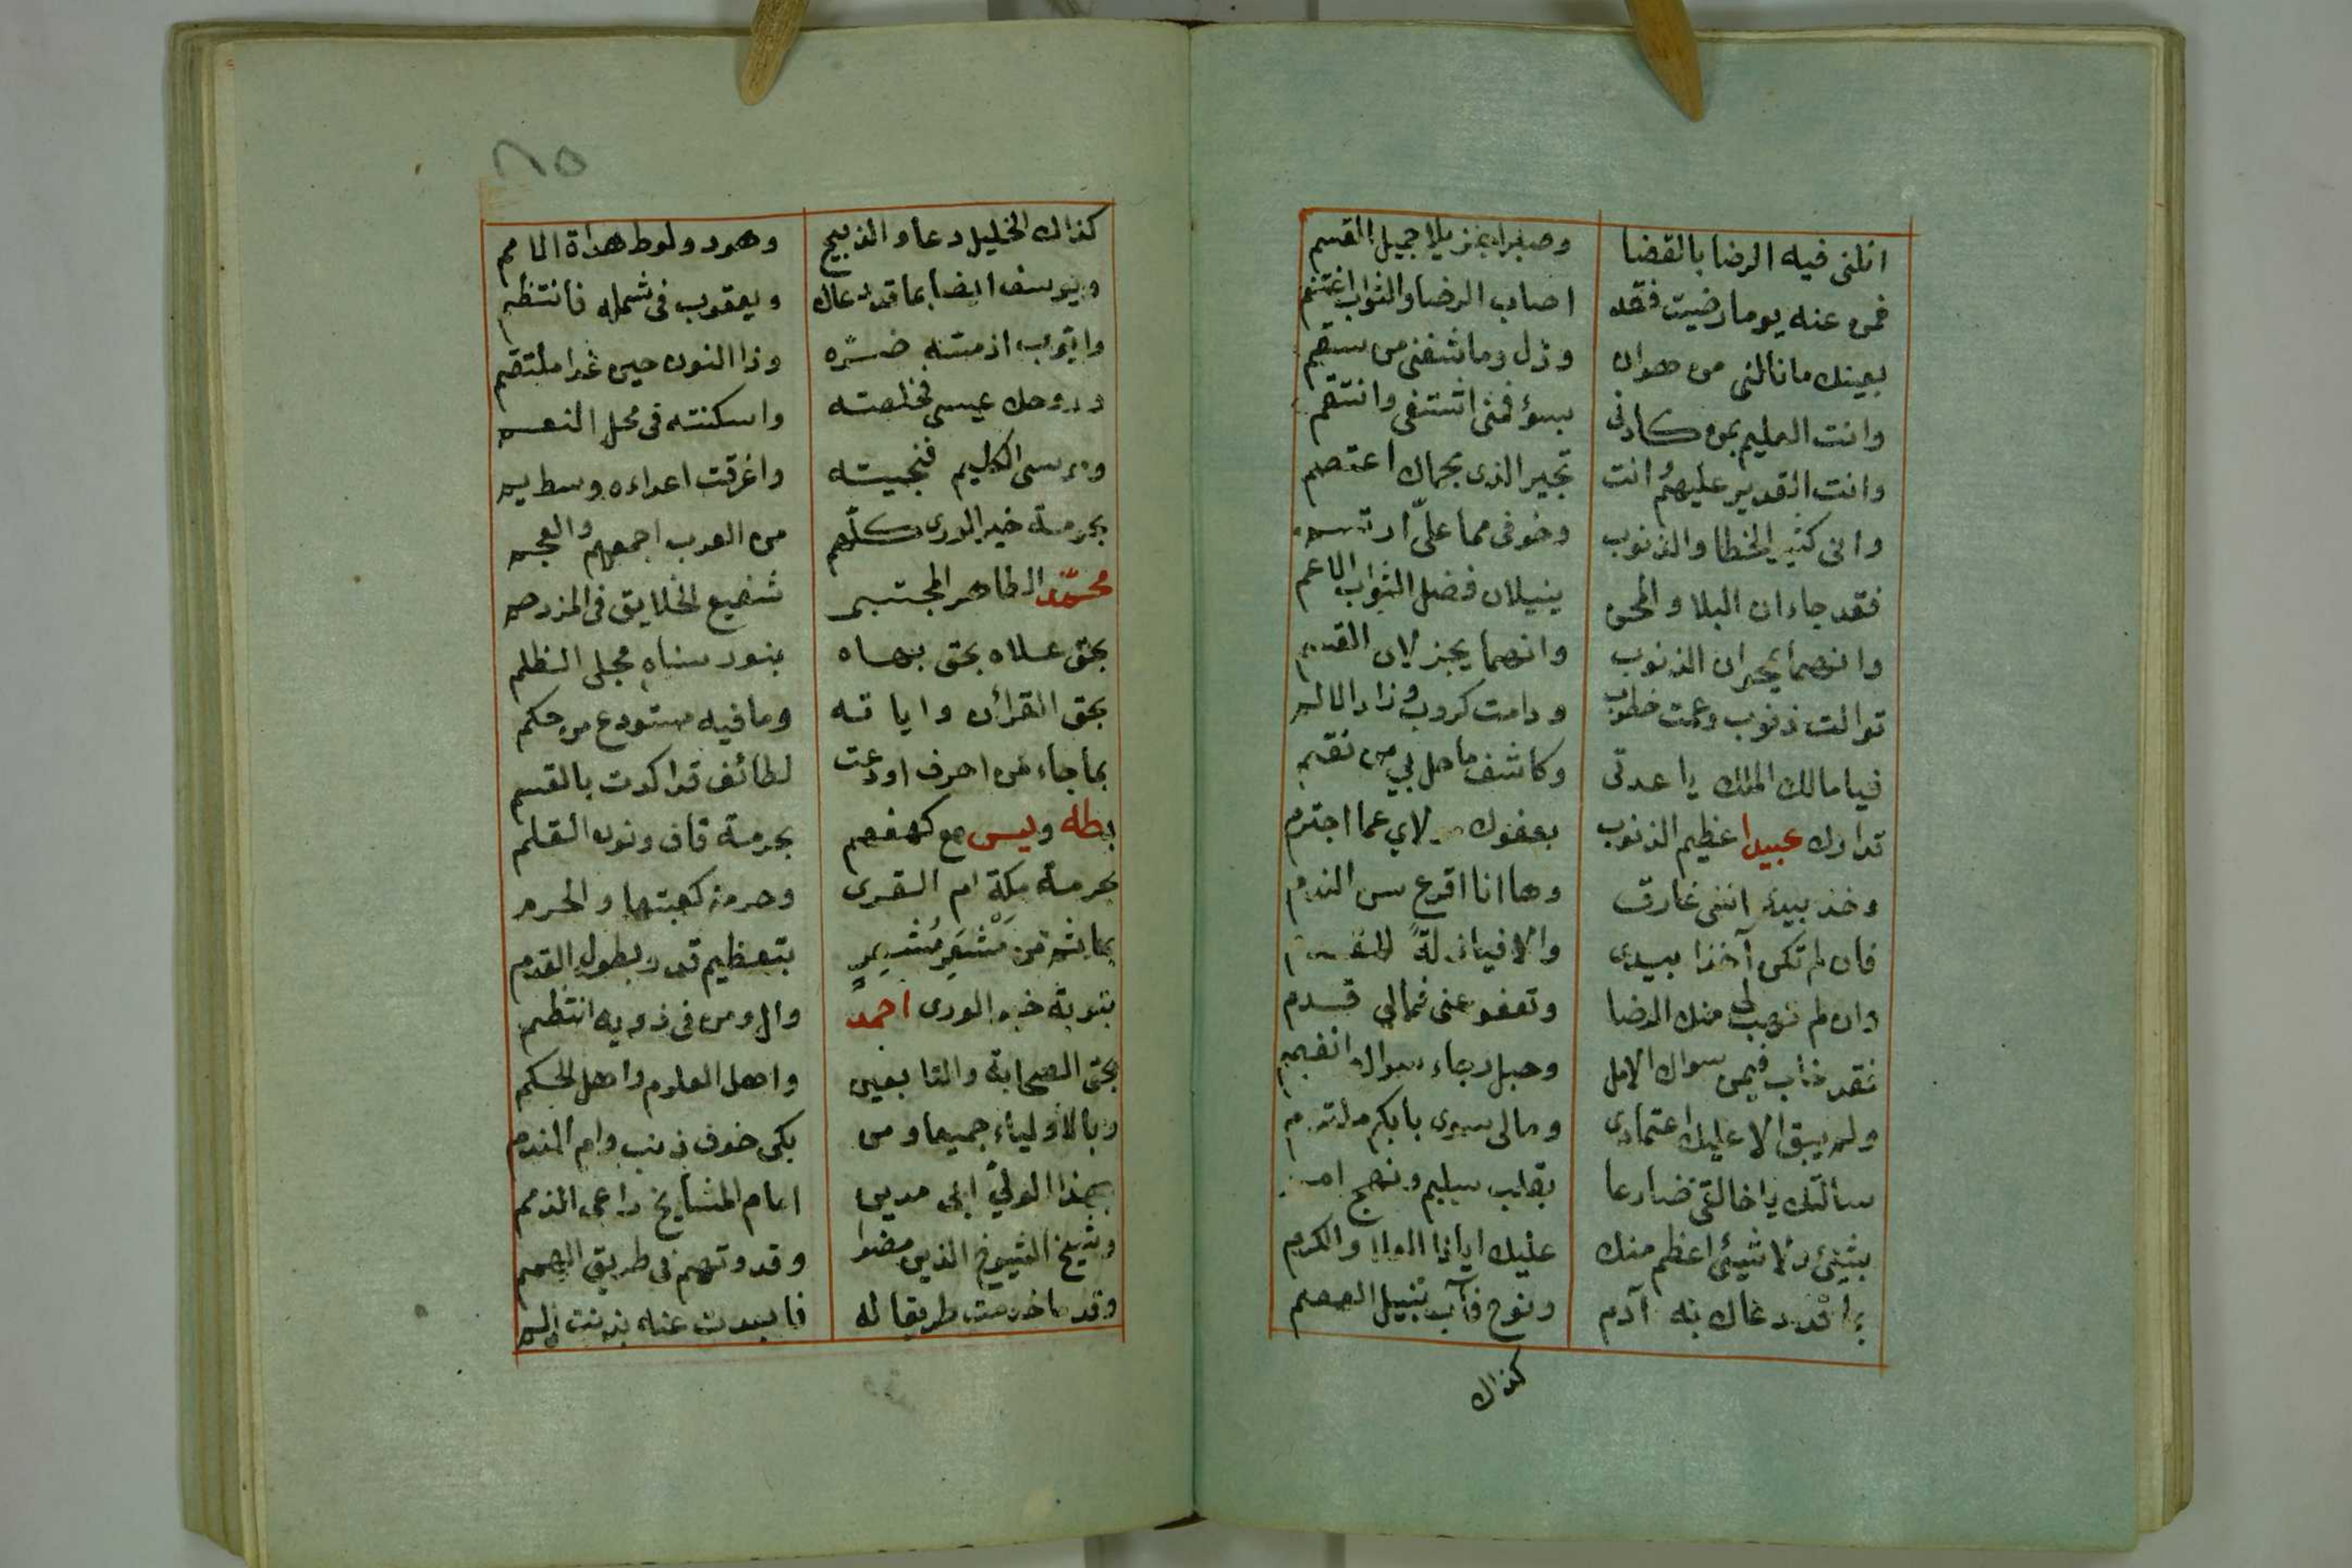 انلنى فيه الرضا بالقضا وصبرا جميل القسم
فمن عنه يوما رضيت فقد اصاب الرضا والثواب اغتنم
بعينك مانالنى من هوان وذل وما شفنى من سقم
وانت العليم بمن كادنى بسؤ فمنى اشتفى وانتقم
وانت القدير عليهم انت تجير الذى بحماك اعتصم
وانى كثير الخطا والذنوب وخوفى مما علىّ ارتسم
فقد جاء ان البلا والمحن ينيلان فضل الثواب الاعم
وانهما يجبران الذنوب وانهما يجزلان القسم
توالت ذنوب وعمت خطوب ودامت كروب وزاد الالم
فيا مالك الملك يا عدتى وكاشف ما حل بي من نقم
تدارك عبيدا عظيم الذنوب بعفوك لاي عما اجترم
وخذ بيد اننى غارق وها انا اقرع سن الندم
فان لم تكن آخذا بيدى والا فيا زلةً للقدم
وان لم تهب لى منك الرضا وتعفو عنى فمالى قدم
فقد خاب فيمن سواك الامل وحبل رجاء سواك انفصم
ولم يبق الا عليك اعتمادى ومالى سوى بابكم ملتزم
سألتك يا خالقى ضارعا بقلب سليم ونهج امم
بشيئ ولا شيئ اعظم منك عليك ايا ذا العلا والكرم
بما قد دعاك به آدم ونوح فآب بنيل العصم
كذاك
٨٥
كذاك الخليل دعا والذبيح وهود ولوط هداة الامم
ويوسف ايضا بما قد دعاك ويعقوب فى شمله فانتظم
وايوب اذ مسته ضره وذا النون حين غدا ملتقم
وروحك عيسى فخلصته واسكنته فى محل النعم
وموسى الكليم فنجيته واغرقت اعداءه وسط يم
بحرمة خير الورى كلهم من العرب اجمعهم والعجم
محمد الطاهر المجتبى شفيع الخلايق فى المزدحم
بحق علاه بحق بهاه بنور سناه مجلى الظلم
بحق القرأن واياته وما فيه مستودع من حكم
بما جاء من احرف اودعت لطائف قد اكدت بالقسم
بطه ويس مع كهفهم بحرمة قاف ونون القلم
بحرمة مكة ام القرى وحرمة كعبتها والحرم
بما ثم من مَشْعَرٍ مُشْعِرٍ بتعظيم قدر بطول القدم
بتربة خير الورى احمد وال ومن فى ذويه انتظم
بحق الصحابة والتابعين واهل العلوم واهل الحكم
وبالاولياء جميعا ومن بكى خوف ذنب وام الندم
بهذا الولىّ ابى مدين امام المشايخ راعى الذمم
وشيخ الشيوخ الذين مضوا وقدوتهم فى طريق الهمم
وقدما خدمت طريقا له فابعدت عنه بذنب الم